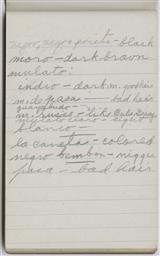 negro, negro prieto - black
moro - dark brown
mulato:
indio - dark m. good hair
m. de pasa - bad hair
m. ruso - like
mulato claro - light
blanco -
la canela - colored
negro bembon - nigger
pasa - bad hair